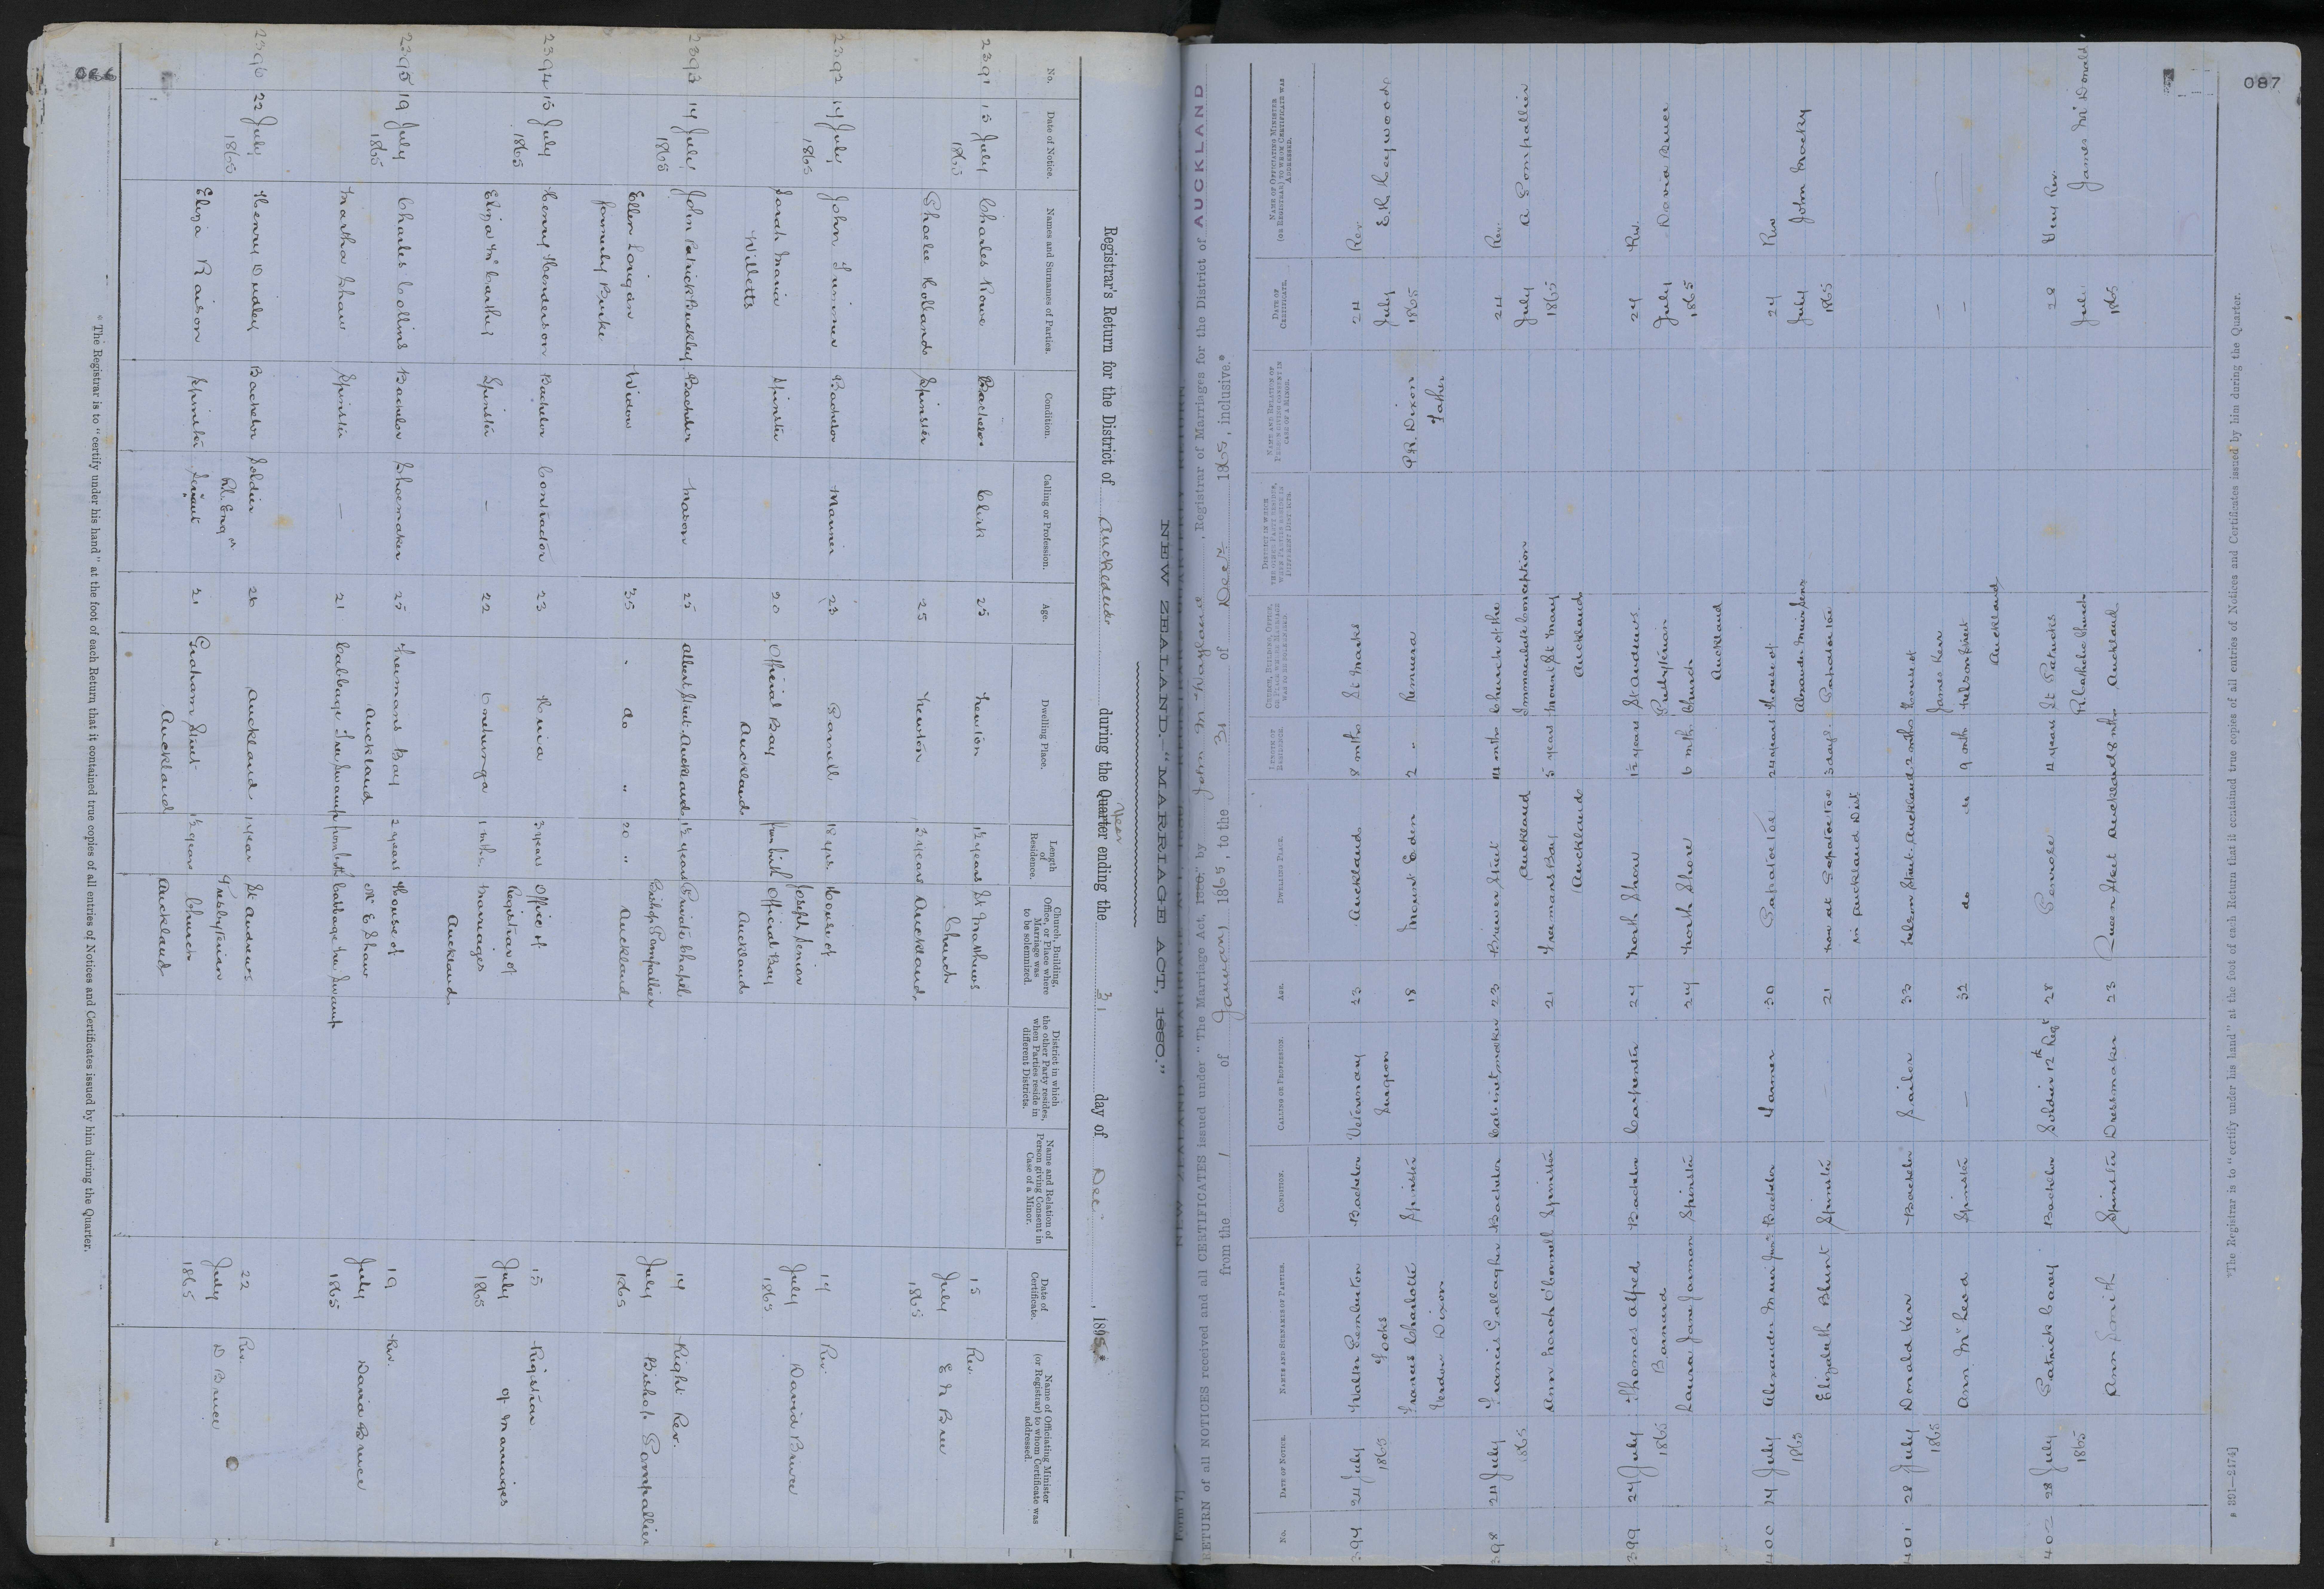 066
NEW ZEALAND.—"MARRIAGE ACT, 1880."
Registrar's Return for the District of Auckland during the Quarter Year ending the 31 day of Dec , 1865
No.
Date of Notice.
Names and Surnames of Parties.
Condition.
Calling or Profession.
Age.
Dwelling Place.
Length of Residence.
Church, Building, Office, or Place where Marriage was to be solemnized.
District in which the other Party resides, when Parties reside in different Districts.
Name and Relation of Person giving Consent in Case of a Minor.
Date of Certificate.
Name of Officiating Minister (or Registrar) to whom Certificate was addressed.
2391 15 July 1865 Charles Rowe Bachelor Clerk 25 Newton 1½ years St Mathews Church 15 July 1865 Rev.
Phoebe Holland Spinster 25 Newton 3 years Auckland E N Bree
2392 14 July 1865 John Bachelor Mariner 23 Parnell 18 yrs House of Joseph Senior 14 July 1865 Rev.
Sarah Maria Willetts Spinster 20 Official Bay Auckland from birth Official Bay Auckland David Bruce
2393 14 July 1865 John Patrick Buckley Bachelor Mason 25 Albert Street Auckland 1½ years Private Chapel 14 July 1865 Right Rev.
Ellen Lonigan formerly Burke Widow 35 " do " 20 " Bishop Pompallier Auckland Bishop Pompallier
2394 15 July 1865 Henry Henderson Bachelor Contractor 23 Huia 3 years Office of Registrar of Marriages Auckland 15 July 1865 Registrar of Marriages
Eliza McCarthy Spinster — 22 Onehunga 1 mths
2395 19 July 1865 Charles Collins Bachelor Shoemaker 25 Freemans Bay Auckland 2 years House of Mr E Shaw 19 July 1865 Rev.
Martha Shaw Spinster — 21 Cabbage Tree Swamp from birth Cabbage Tree Swamp David Bruce
2396 22 July 1865 Henry Dudley Bachelor Soldier Rl. Engrs 26 Auckland 1 year St Andrews Presbyterian Church Auckland 22 July 1865 Rev.
Eliza Raison Spinster Servant 21 Graham Street Auckland 1½ years D Bruce
* The Registrar is to "certify under his hand" at the foot of each Return that it contained true copies of all entries of Notices and Certificates issued by him during the Quarter.
087
Form 7]
RETURN of all NOTICES received and all CERTIFICATES issued under "The Marriage Act, 1880," by John M Wayland, Registrar of Marriages for the District of AUCKLAND
from the 1 of January 1865, to the 31 of Decr 1865, inclusive.*
No.
DATE OF NOTICE.
NAMES AND SURNAMES OF PARTIES.
CONDITION.
CALLING OR PROFESSION.
AGE.
DWELLING PLACE.
LENGTH OF RESIDENCE.
CHURCH, BUILDING, OFFICE, OR PLACE WHERE MARRIAGE WAS TO BE SOLEMNIZED
DISTRICT IN WHICH THE OTHER PARTY RESIDES, WHEN PARTIES RESIDE IN DIFFERENT DISTRICTS.
NAME AND RELATION OF PERSON GIVING CONSENT IN CASE OF A MINOR.
DATE OF CERTIFICATE.
NAME OF OFFICIATING MINISTER (OR REGISTRAR) TO WHOM CERTIFICATE WAS ADDRESSED.
24 July 1865 Walter Pemberton Bachelor Veterinary Surgeon 23 Auckland 8 mths St Marks 24 July 1865 Rev.
Frances Charlotte Verdon Dixon Spinster 18 Mount Eden 2 " Remuera P R. Dixon Father
398 24 July 1865 Francis Gallagher Bachelor Cabinet maker 23 Brewer Street Auckland 4 mths Church of the Immaculate Conception 24 July 1865 Rev.
Ann Norah O'Connell Spinster 21 Freemans Bay Auckland 5 years Mount St Mary Auckland A Pompallier
399 24 July 1865 Thomas Alfred Barnard Bachelor Carpenter 24 North Shore 1½ years St Andrews Presbyterian Church Auckland 24 July 1865 Rev.
Laura Jane Jarman Spinster 24 North Shore 6 mths. David Bruce
400 24 July 1865 Alexander Muir Junr Bachelor Farmer 30 Papatoetoe 24 years House of Alexander Muir Senr 24 July 1865 Rev
Elizabeth Blunt Spinster — 21 now at Papatoetoe in Auckland Dist. 3 days. Papatoetoe John Macky
401 28 July 1865 Donald Kerr Bachelor Sailor 33 Nelson Street Auckland 2 mths House of James Kerr — —
Ann McLeod Spinster — 32 do 9 mths Nelson Street Auckland —
402 28 July 1865 Patrick Carey Bachelor Soldier 12th Regt 28 Penrose 4 years St Patricks 28 July 1865 Very Rev.
Ann Smith Spinster Dressmaker 23 Queen Street Auckland 8 mths R Catholic Church Auckland James McDonald
*The Registrar is to "certify under his hand" at the foot of each Return that it contained true copies of all entries of Notices and Certificates issued by him during the Quarter.